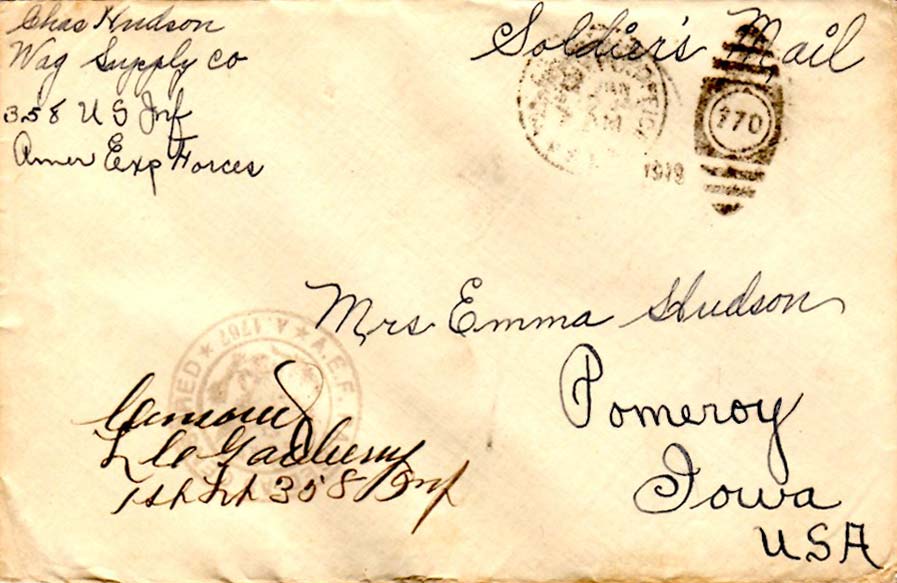 Chas Hudson
Wag Supply Co
358 U S Inf
Amer Exp Forces
Soldier's Mail
1919
770
Mrs Emma Hudson
Pomeroy
Iowa
USA
A.E.F.
A.1767
Censored
1st Lt 358 Inf